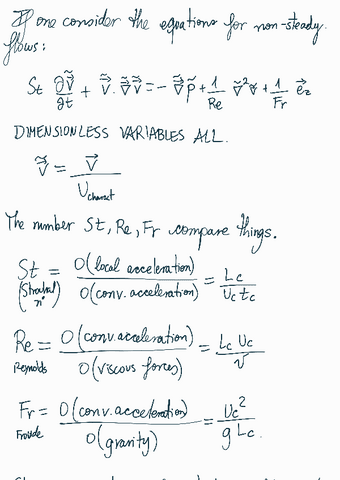 If one consider the equations for non-steady
flows:
St ∂ṽ/∂t + ṽ · ∇̃ṽ = - ∇̃p̃ + 1/Re ∇̃²ṽ + 1/Fr e⃗z
DIMENSIONLESS VARIABLES ALL.
ṽ = v⃗ / Ucharact
The number St, Re, Fr compare things.
St = O(local acceleration) / O(conv. acceleration) = Lc / Uc tc
(Strouhal nº)
Re = O(conv. acceleration) / O(viscous forces) = Lc Uc / ν
Reynolds
Fr = O(conv. acceleration) / O(gravity) = Uc² / g Lc.
Froude